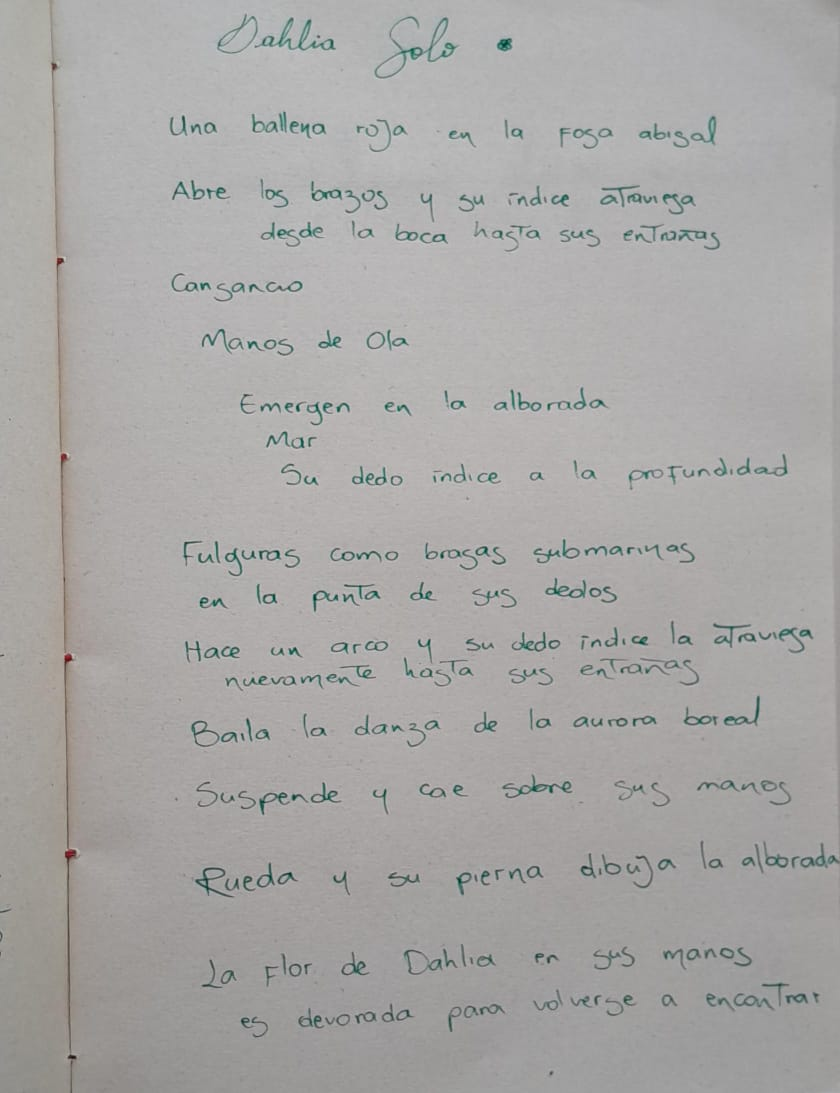 Dahlia Solo.
Una ballena roja en la Fosa abisal
Abre los brazos y su indice atraviesa
desde la boca hasta sus entrañas
Cansancio
Manos de Ola
Emergen en la alborada
Mar
Su dedo indice a la profundidad
Fulguras como brasas submarinas
en la punta de sus dedos
Hace un arco y su dedo indice la atraviesa
nuevamente hasta sus entrañas
Baila la danza de la aurora boreal
Suspende y cae sobre sus manos
Rueda y su pierna dibuja la alborada
La Flor de Dahlia en sus manos
es devorada para volverse a encontrar